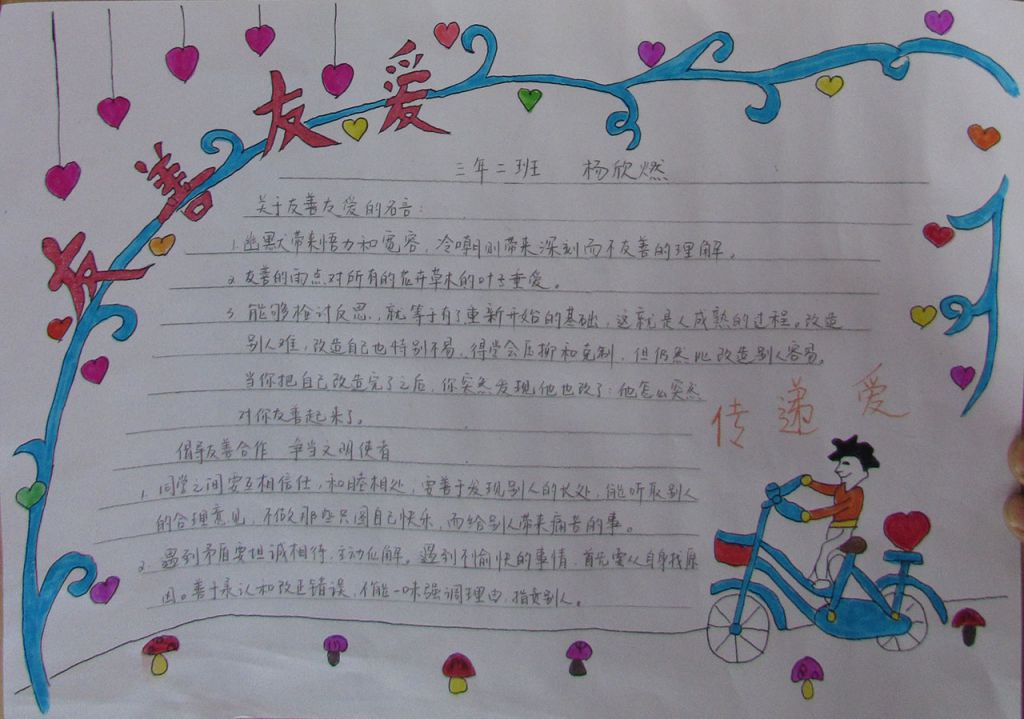 友善友爱
三年二班 杨欣燃
关于友善友爱的名言：
1.幽默带来悟力和宽容，冷嘲则带来深刻而不友善的理解。
2.友善的雨点对所有的花卉草木的叶子垂爱。
3.能够检讨反思，就等于有了重新开始的基础，这就是人成熟的过程。改造
别人难，改造自己也特别不易，得学会压抑和克制，但仍然比改造别人容易。
当你把自己改造完了之后，你突然发现他也改了：他怎么突然
对你友善起来了。
传递爱
倡导友善合作 争当文明使者
1.同学之间要互相信任，和睦相处，要善于发现别人的长处，能听取别人
的合理意见，不做那些只图自己快乐，而给别人带来痛苦的事。
2.遇到矛盾要坦诚相待，主动化解。遇到不愉快的事情，首先要从自身找原
因。善于承认和改正错误，不能一味强调理由，指责别人。